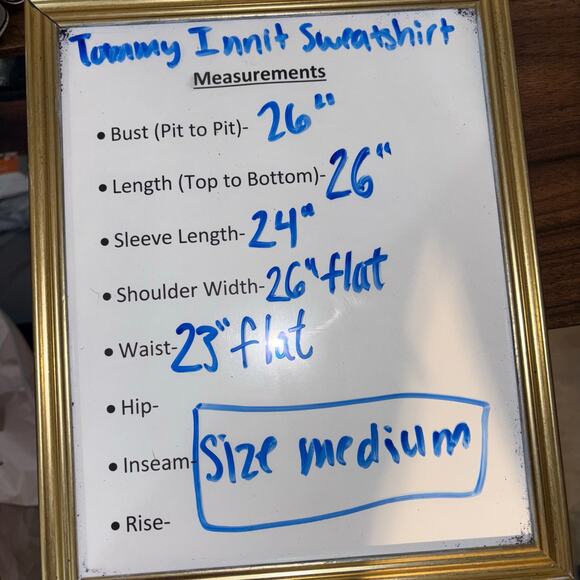 Tommy Innit Sweatshirt
Measurements
• Bust (Pit to Pit)- 26"
• Length (Top to Bottom)- 26"
• Sleeve Length- 24"
• Shoulder Width- 26" flat
• Waist- 23" flat
• Hip-
• Inseam- Size medium
• Rise-